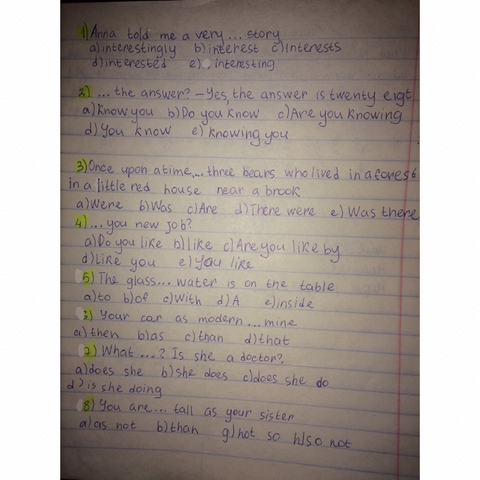 1) Anna told me a very ... story
a) interestingly b) interest c) Interests
d) interested e) interesting
2) ... the answer? – Yes, the answer is twenty eigt
a) Know you b) Do you know c) Are you knowing
d) You know e) Knowing you
3) Once upon a time, ... three bears who lived in a forest
in a little red house near a brook
a) Were b) Was c) Are d) There were e) Was there
4) ... you new job?
a) Do you like b) like c) Are you like by
d) Like you e) You like
5) The glass ... water is on the table
a) to b) of c) With d) A e) inside
6) Your car as modern ... mine
a) then b) as c) than d) that
7) What ...? Is she a doctor?
a) does she b) she does c) does she do
d) is she doing
8) You are ... tall as your sister
a) as not b) than g) not so h) so not